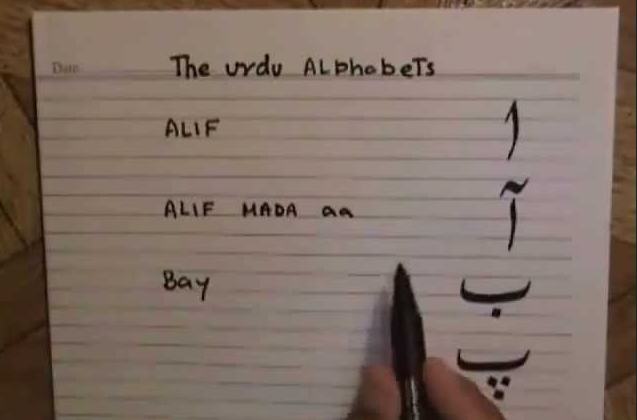 Date
The urdu ALphabeTs
ALIF ا
ALIF MADA aa آ
Bay ب
پ